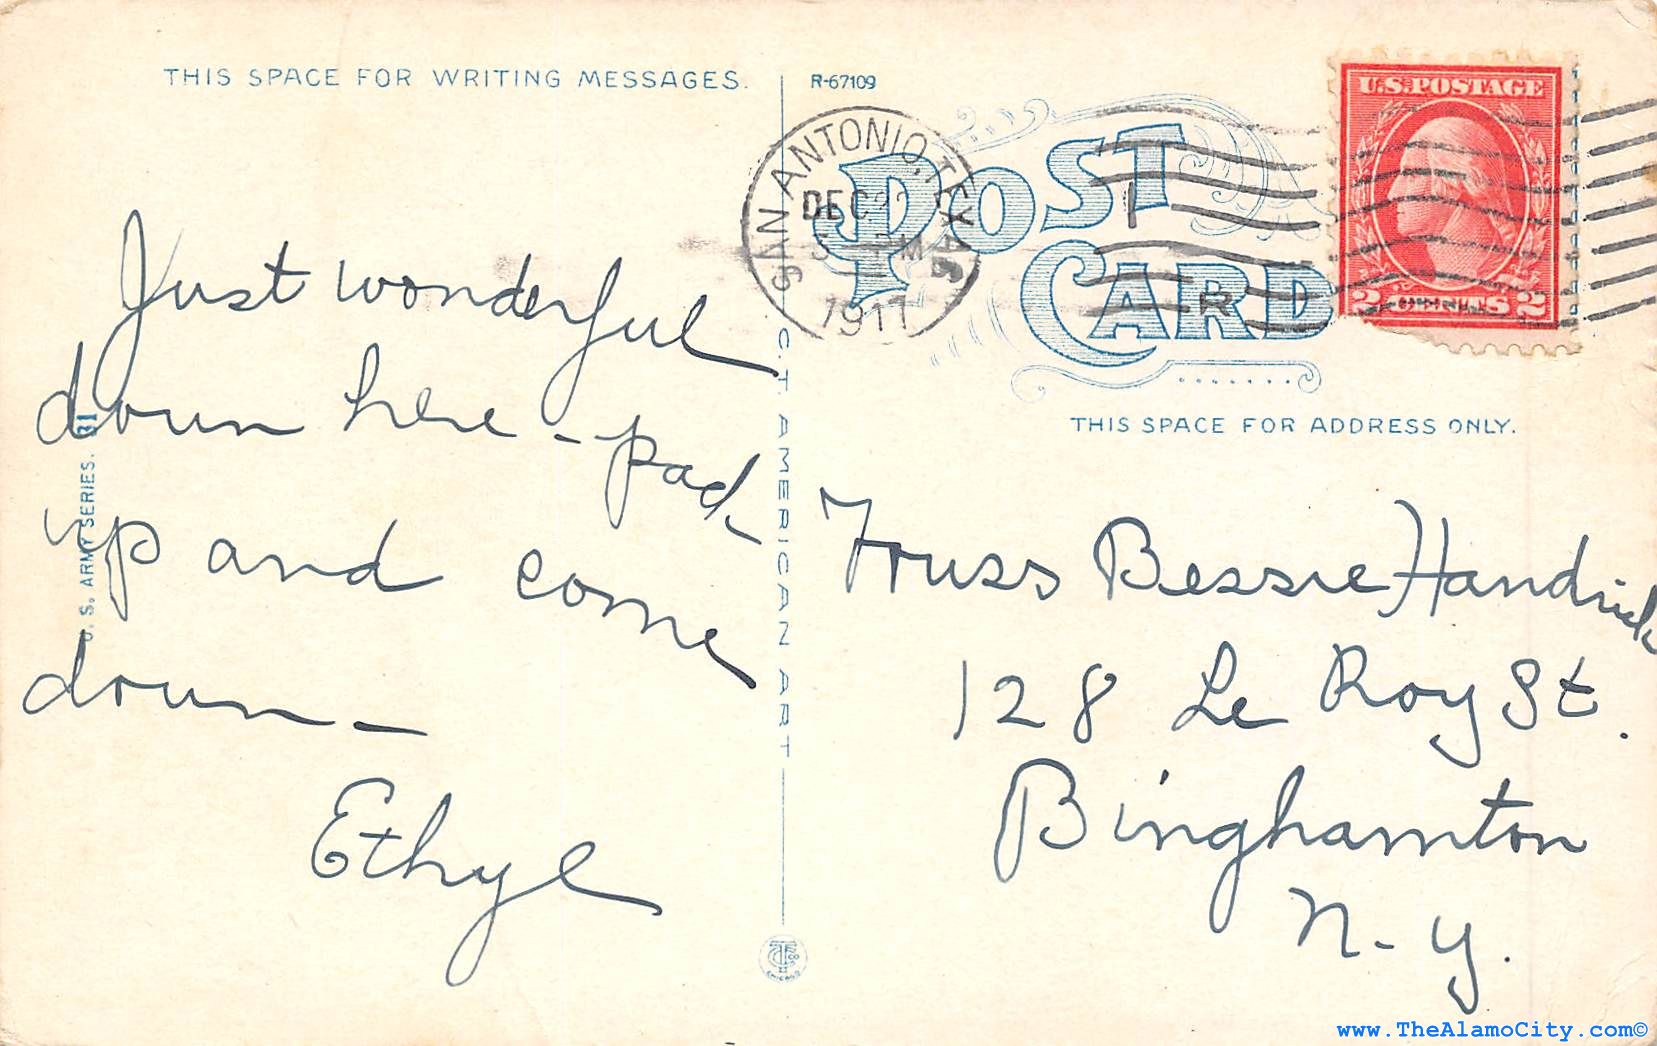 THIS SPACE FOR WRITING MESSAGES.
R-67109
POST
CARD
SAN ANTONIO, TEXAS
DEC
M
1917
R
U.S. POSTAGE
2 CENTS 2
THIS SPACE FOR ADDRESS ONLY.
Just wonderful
down here - pack
up and come
down -
Ethyl
U. S. ARMY SERIES.
C. T. AMERICAN ART
Bessie
128 Le Roy St.
Binghamton
N-Y.
CHICAGO
www.TheAlamoCity.com©